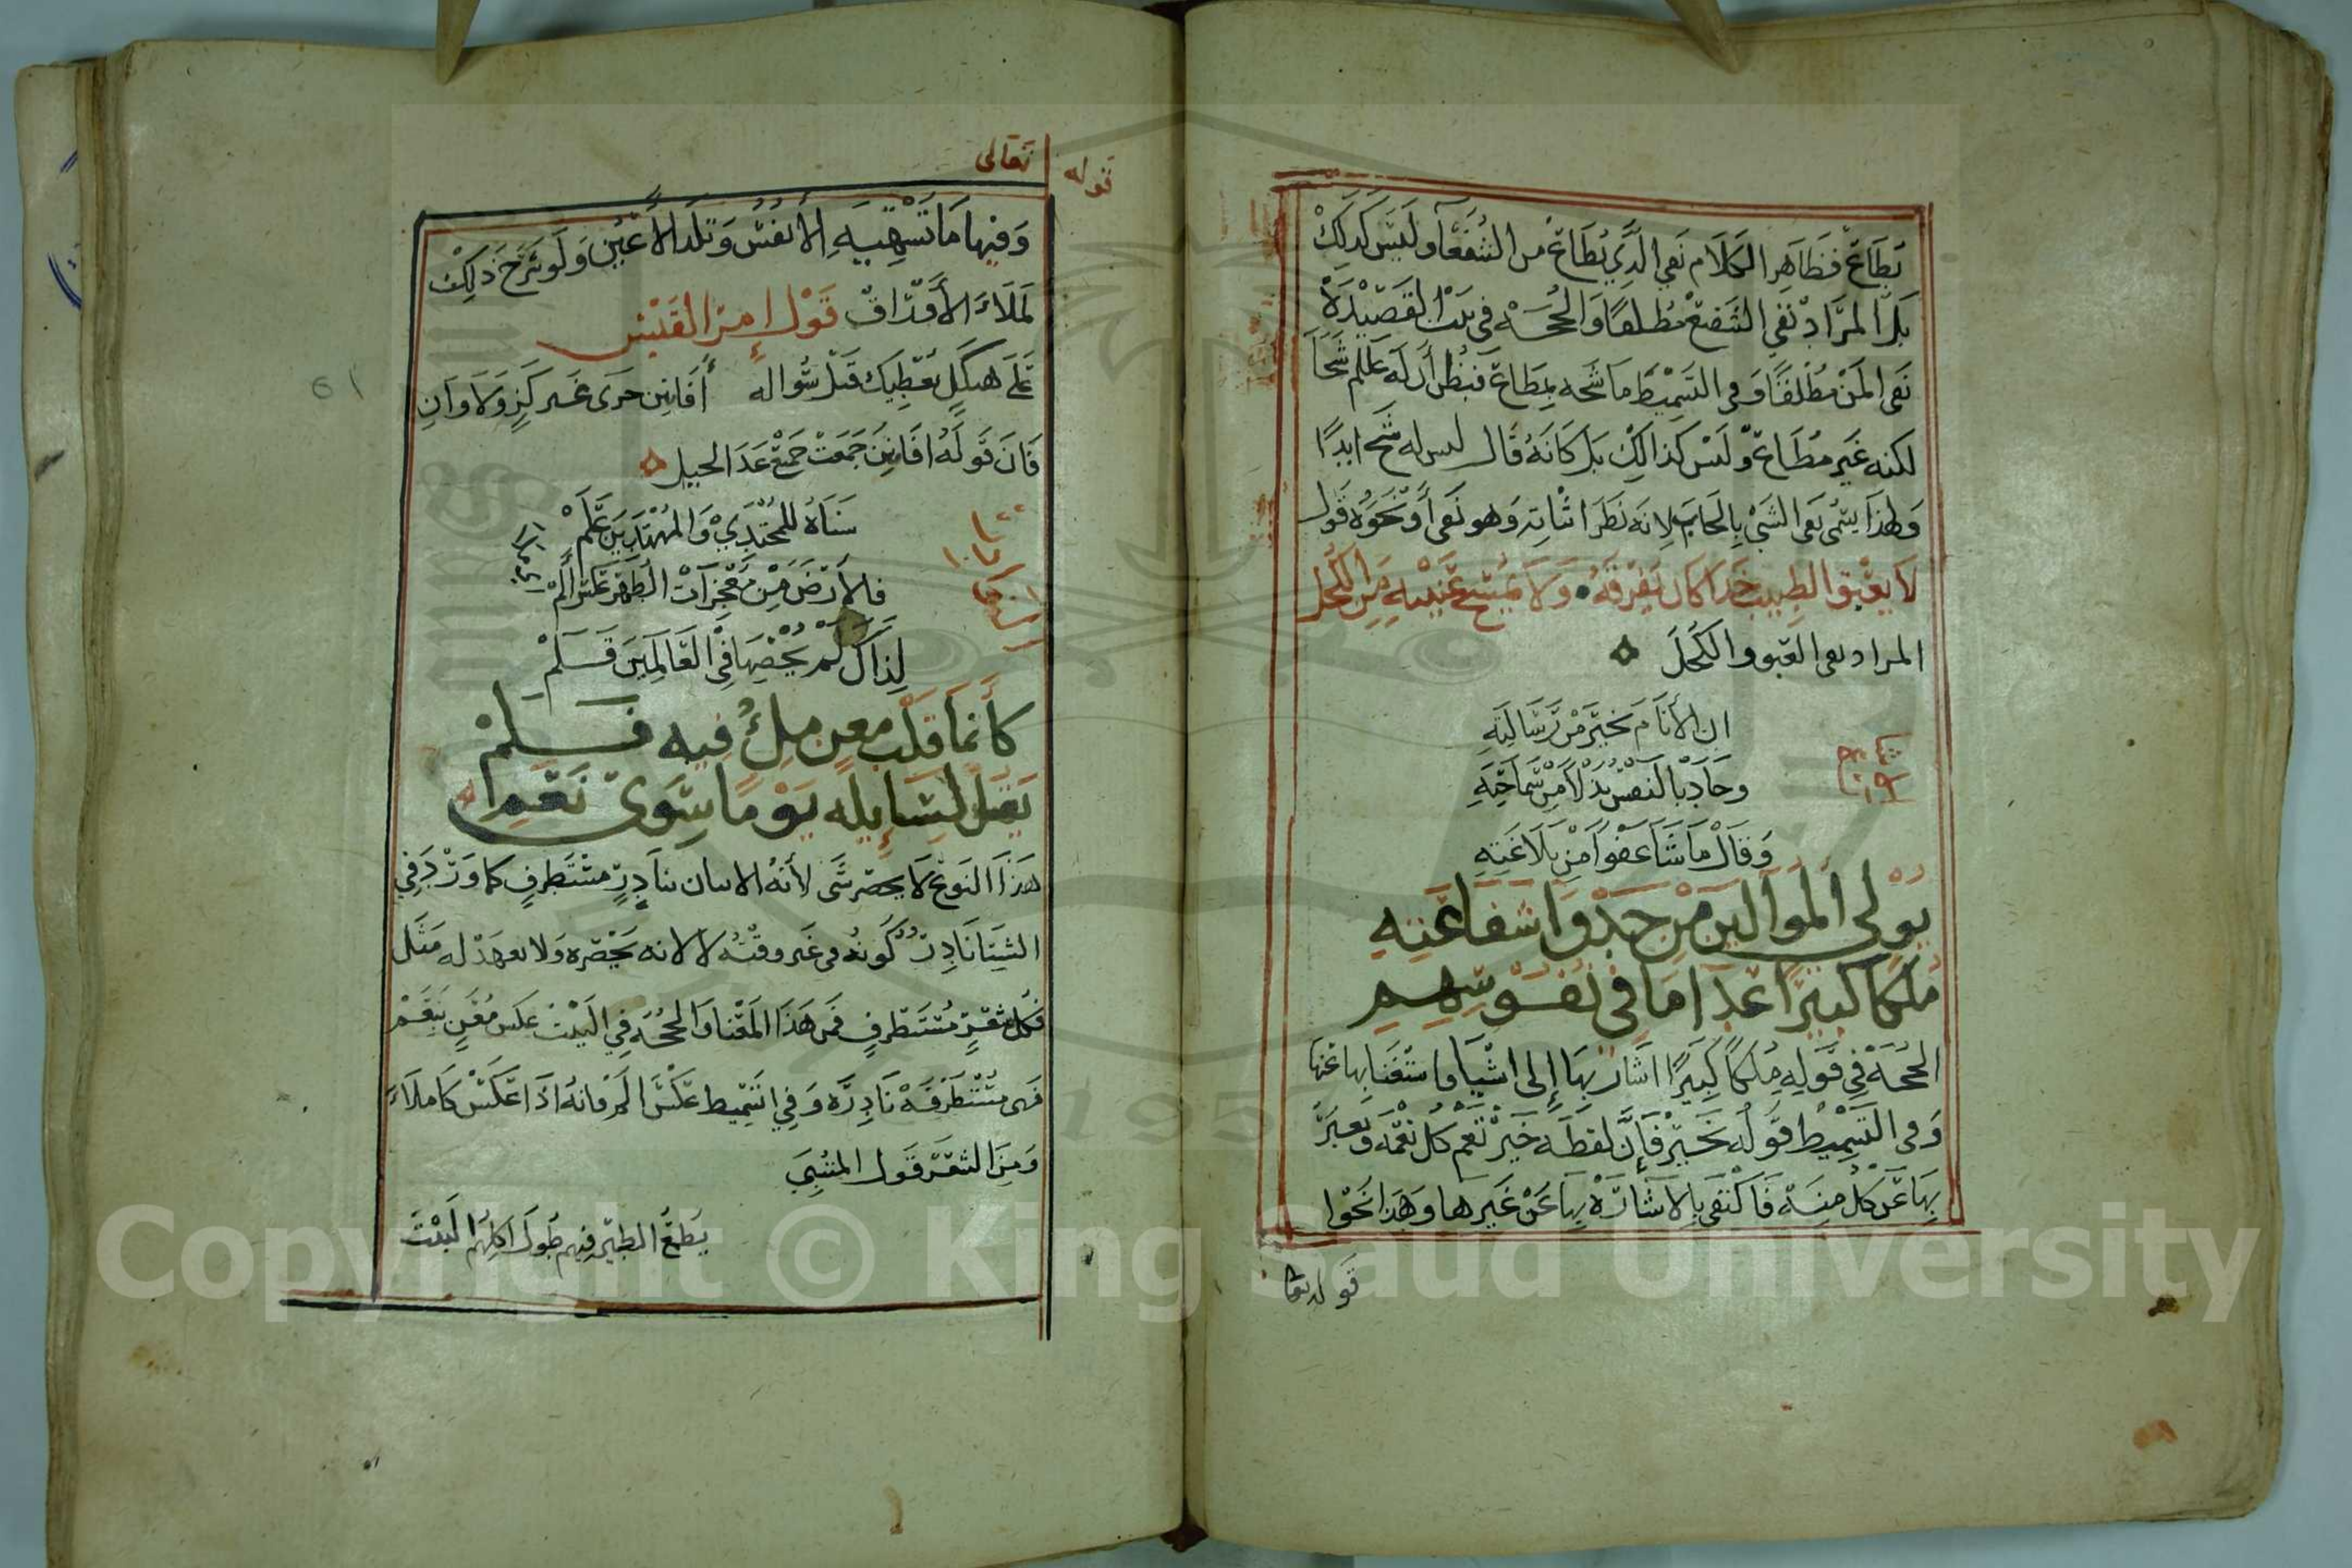 يطاع فظاهر الكلام نفي الذي يطاع من الشفعا وليس كذلك
بل المراد نفي الشفيع مطلقا والحجة في بيت القصيدة
نفي المن مطلقا وفي التسميط ما شحه بمطاع فيظن أن له شحا
لكنه غير مطاع وليس كذالك بل كانه قال ليس له شح ابدا
ولهذا يسمى نفي الشي بايجابه لانه نظر اثباته وهو نفي أو نحوه قول
لا يعبق الطيب خداه كان يفرقه ولا يمسح عينيه من الكحل
المراد نفي العبق والكحل
ان الأنام بخير من رسالته
وجاد بالنفس بذلا من سماحته
وقال ما شا عفوا من بلاغته
يولي الموالين من جدوا شفاعته
ملكا كبيرا عدا ما في نفوسهم
الحجة في قوله ملكا كبيرا اشار بها إلى اشيا واستغنا بها عنها
وفي التسميط قوله بخير فإن لفظه خير تعم كل نعمة ويعبر
بها عن كل منة فاكتفى بالاشارة بها عن غيرها وهذا نحوا
قوله تعا
قوله تعالى
وفيها ما تشتهيه الأنفس وتلذ الأعين ولو شرح ذلك
لملاء الأوراق قول إمرا القيس
على هيكل يعطيك قبل سواله أفانين جري غير كز ولا وان
فان قوله افانين جمعت جميع عد الجيل
سناه للمجتدي والمهتدين علم
فلارض من معجزات الطهر عكس ألم
لذاك لم يحصها في العالمين قسلم
كأنما قلب معن ملئ فيه فلم
يقل لسايله يوما سوى نعم
هذا النوع لا يحصر شى لأنه الاتيان بنادر مستطرف كما ورد في
الشتا نادر كونه في غير وقته لا لانه يحصره ولا يعهد له مثل
فكل شعر مستطرف فمن هذا المعنا والحجة في البيت عكس معن بنعم
فهي مستطرفة نادرة وفي التسميط عكس الم فانه اذا عكس كاملاء
ومن الشعر قول المتنبي
يطمع الطير فيهم طول اكلهم البيت
Copyright © King Saud University
195